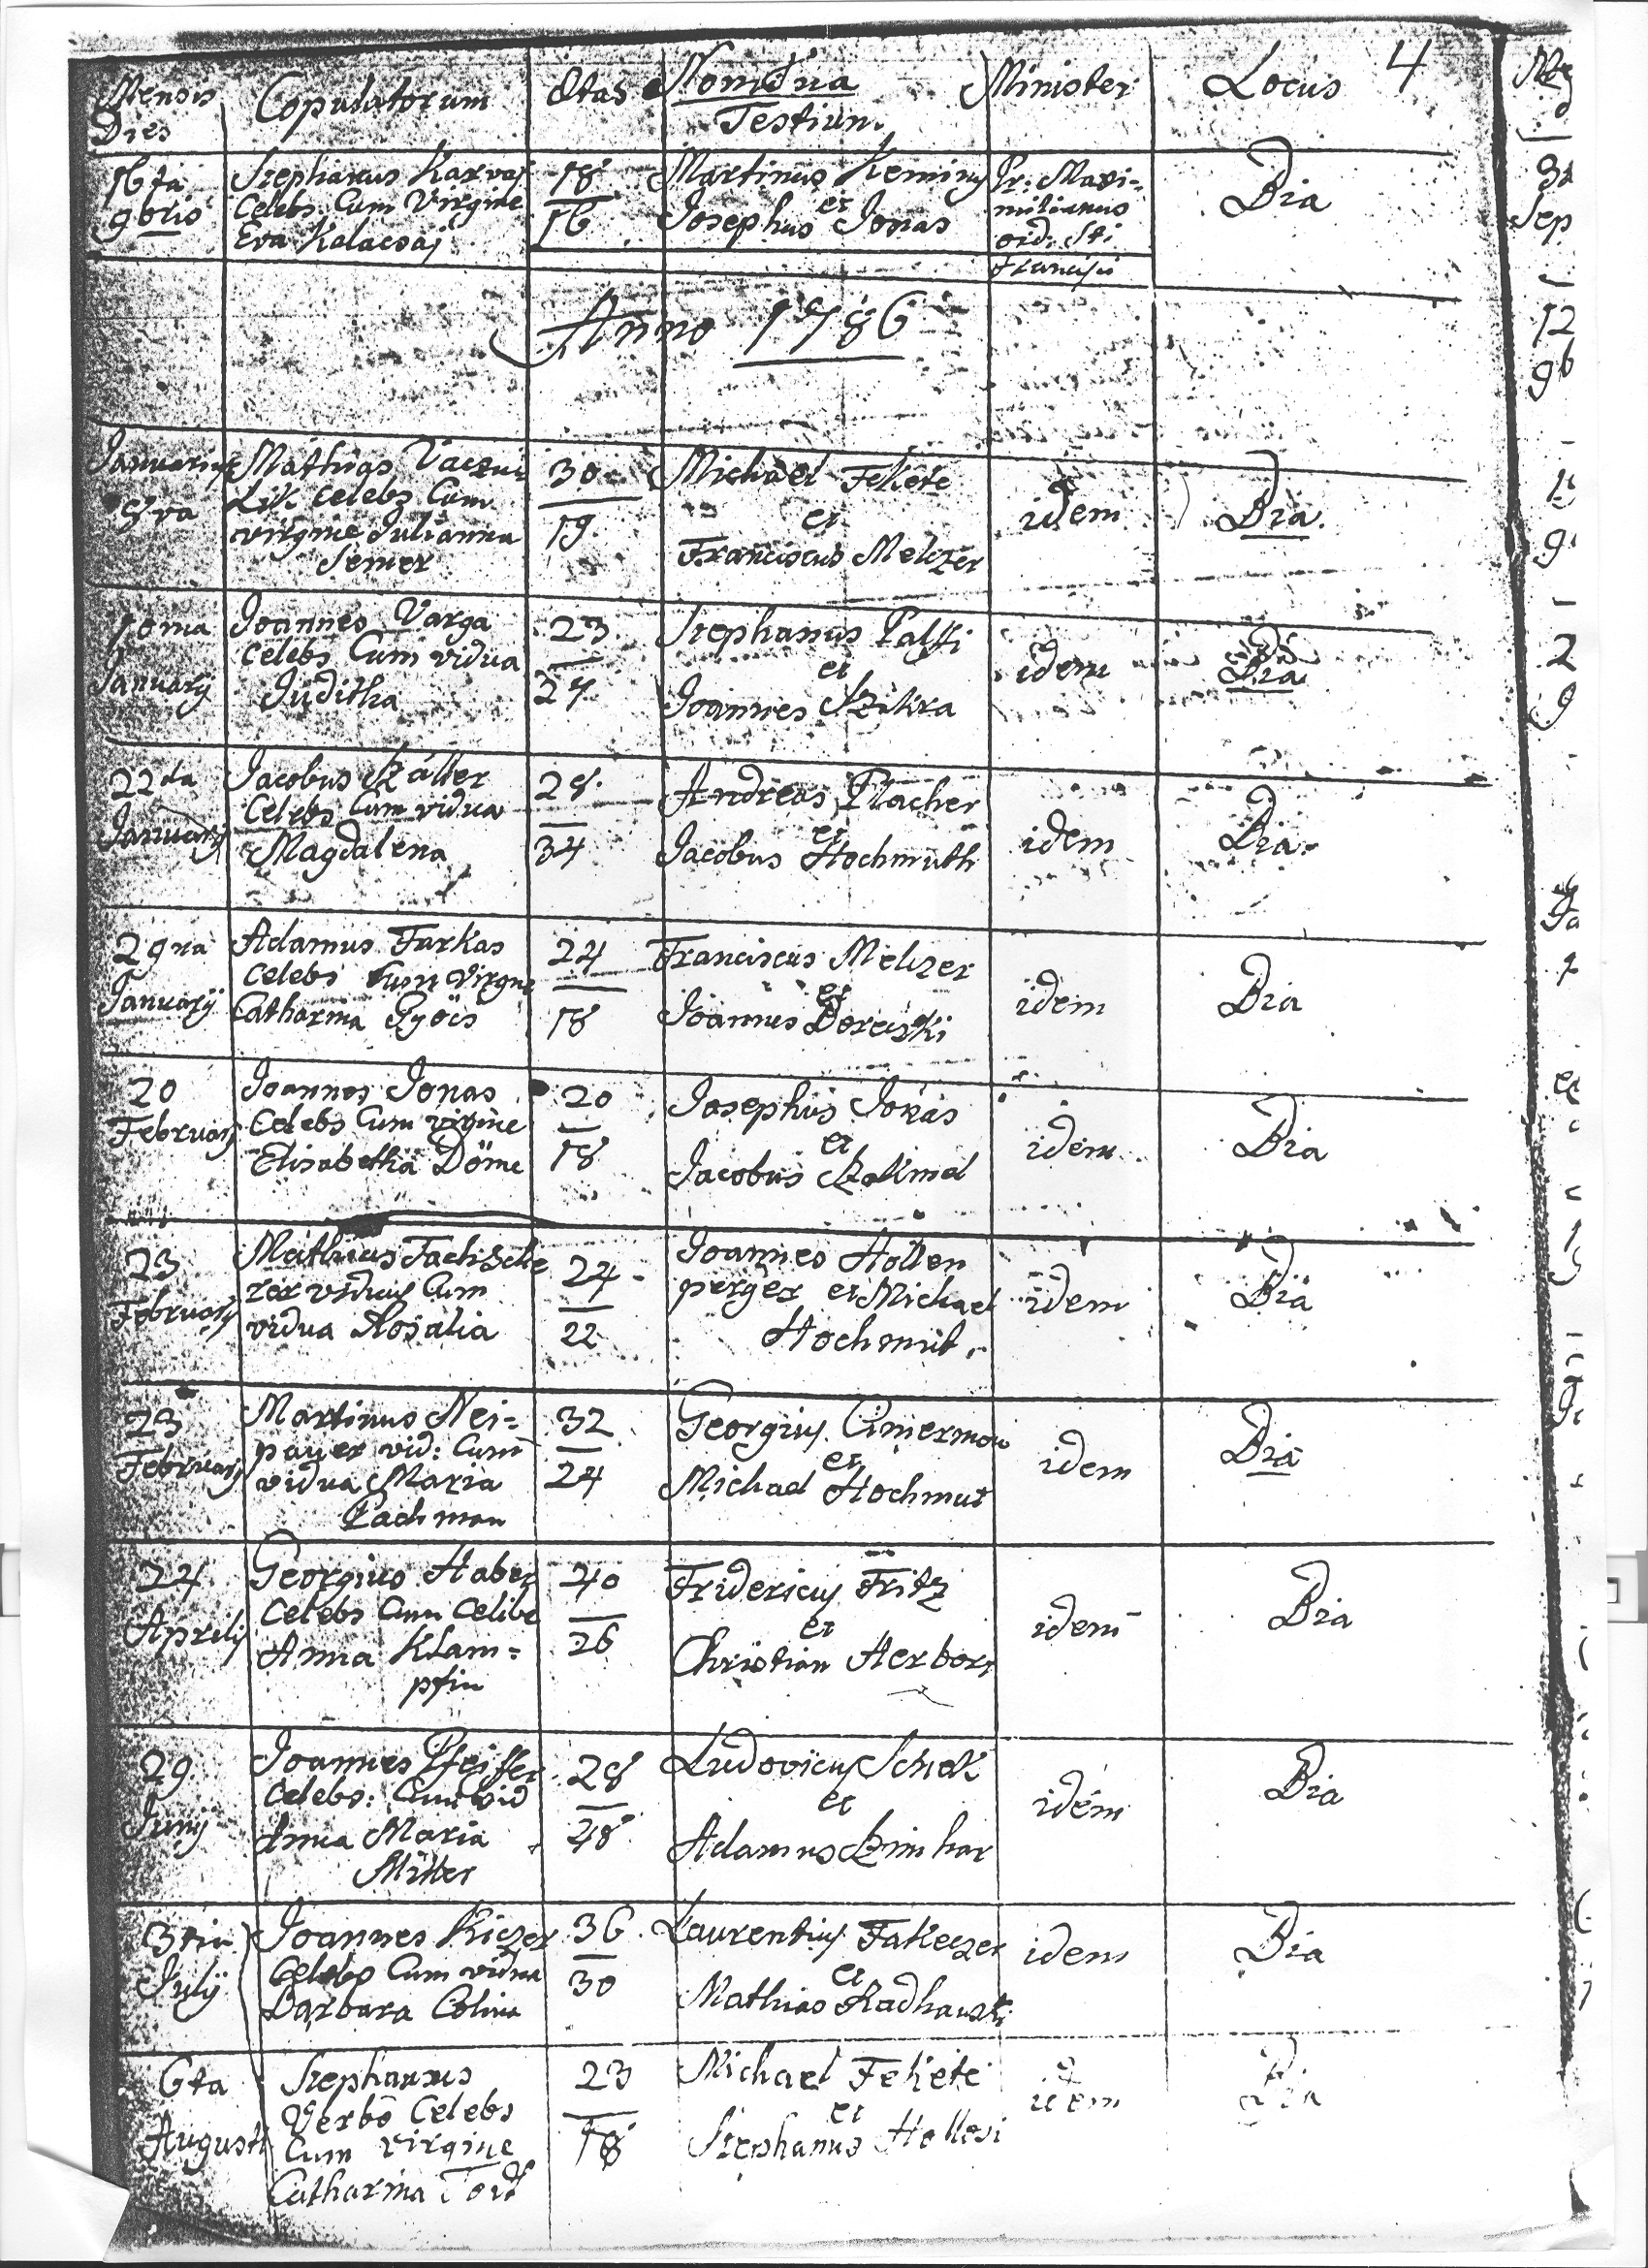 Mensis
Dies
Copulatorum
Ætas
Nomina
Testium
Minister
Locus
4
16ta
9bris
Stephanus Karvaj
Celebs Cum Virgine
Eva Kalacsaj
18
16
Martinus Keminy
et
Josephus Jonas
Pr: Maxi=
milianus
ord: Sti
Francisci
Bia
Anno 1786
Januarius
8va
Mathias Vaczu
Lik Celebs Cum
virgine Julianna
Semer
30
19.
Michael Fekete
et
Franciscus Melczer
idem
Bia.
10ma
Januarij
Joannes Varga
Celebs Cum vidua
Juditha
23.
27
Stephanus Palffi
et
Joannes Szikra
idem
Bia
22da
Januarij
Jacobus
Celebs Cum vidua
Magdalena
28.
34
Andreas Placher
et
Jacobus Hochmuth
idem
Bia.
29na
Januarij
Adamus Farkas
Celebs Cum Virgine
Catharina Györs
24
18
Franciscus Melczer
et
Joannes
idem
Bia
20
Februarij
Joannes Jonas
Celebs Cum virgine
Elisabetha Döme
20
18
Josephus Jonas
et
Jacobus
idem
Bia
23
Februarij
Mathias Fachsche
rer viduus Cum
vidua Rosalia
24
22
Joannes Hollen
perger et Michael
Hochmut.
idem
Bia
23
Februarij
Martinus Nei=
pauer vid: Cum
vidua Maria
Pachman
32
24
Georgius Cimerman
et
Michael Hochmut
idem
Bia
24
Aprilis
Georgius Haber
Celebs Cum Celibe
Anna Klam=
pfin
40
26
Fridericus Fritz
et
Christian Herbort
idem
Bia
29.
Junij
Joannes Pfeiffer
Celebs: Cum vid
Anna Maria
Miller
28
48
Ludovicus Schek
et
Adamus
idem
Bia
3tia
Julij
Joannes Kiczer
Celebs Cum vidua
Barbara Colina
36.
30
Laurentius Fakeczer
et
Mathias
idem
Bia
6ta
Augusti
Stephanus
Verbö Celebs
Cum Virgine
Catharina
23
18
Michael Fekete
et
Stephanus Hollosi
idem
Bia